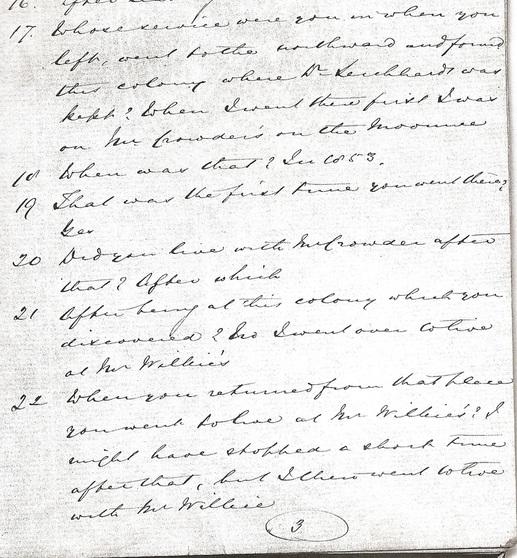 16. After
17. Whose service were you in when you
left, went to the northward and found
this colony where Dr Leichhardt was
kept? When I went there first I was
on Mr Crowder's on the Moonie
18 When was that? In 1853.
19 That was the first time you went there?
Yes
20 Did you live with Mr Crowder after
that? After which
21 After being at this colony which you
discovered? No I went over to live
at Mr Wilkie's
22 When you returned from that place
you went to live at Mr Wilkie's? I
might have stopped a short time
after that, but I then went to live
with Mr Wilkie
3